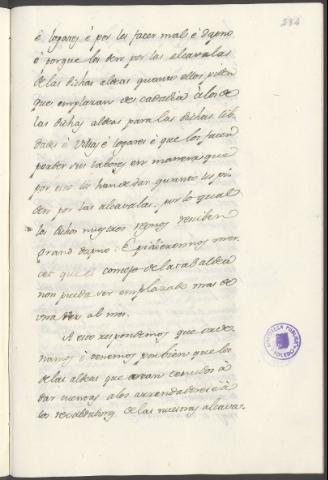 234
é logares é por les facer mal é dapno
é porque los den por las alcavalas
de las dichas aldeas quanto ellos piden
que emplazan de cada dia á los de
las dichas aldeas para las dichas Cib
dades é Villas é logares é que les facen
perder sus labores en manera que
por esto les han de dar quanto les pi
den por las alcavalas, por lo qual
los dichos nuestros regnos reciben
grand dapno: É pidieronnos mer
cet que el concejo de la tal aldea
non pueda ser emplazado mas de
una vez al mes.
A esto respondemos que orde
namos é tenemos por bien que los
de las aldeas que sean tenudos á
dar cuentas a los arrendadores é á
los recabdadores de las nuestras alcavas.
BIBLIOTECA PUBLICA
TOLEDO